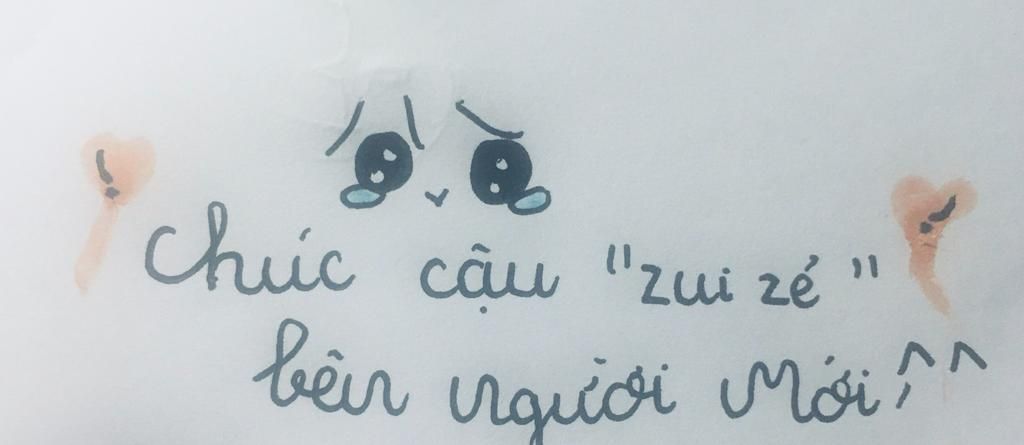 Chúc cậu "zui zẻ"
bên người mới ^^